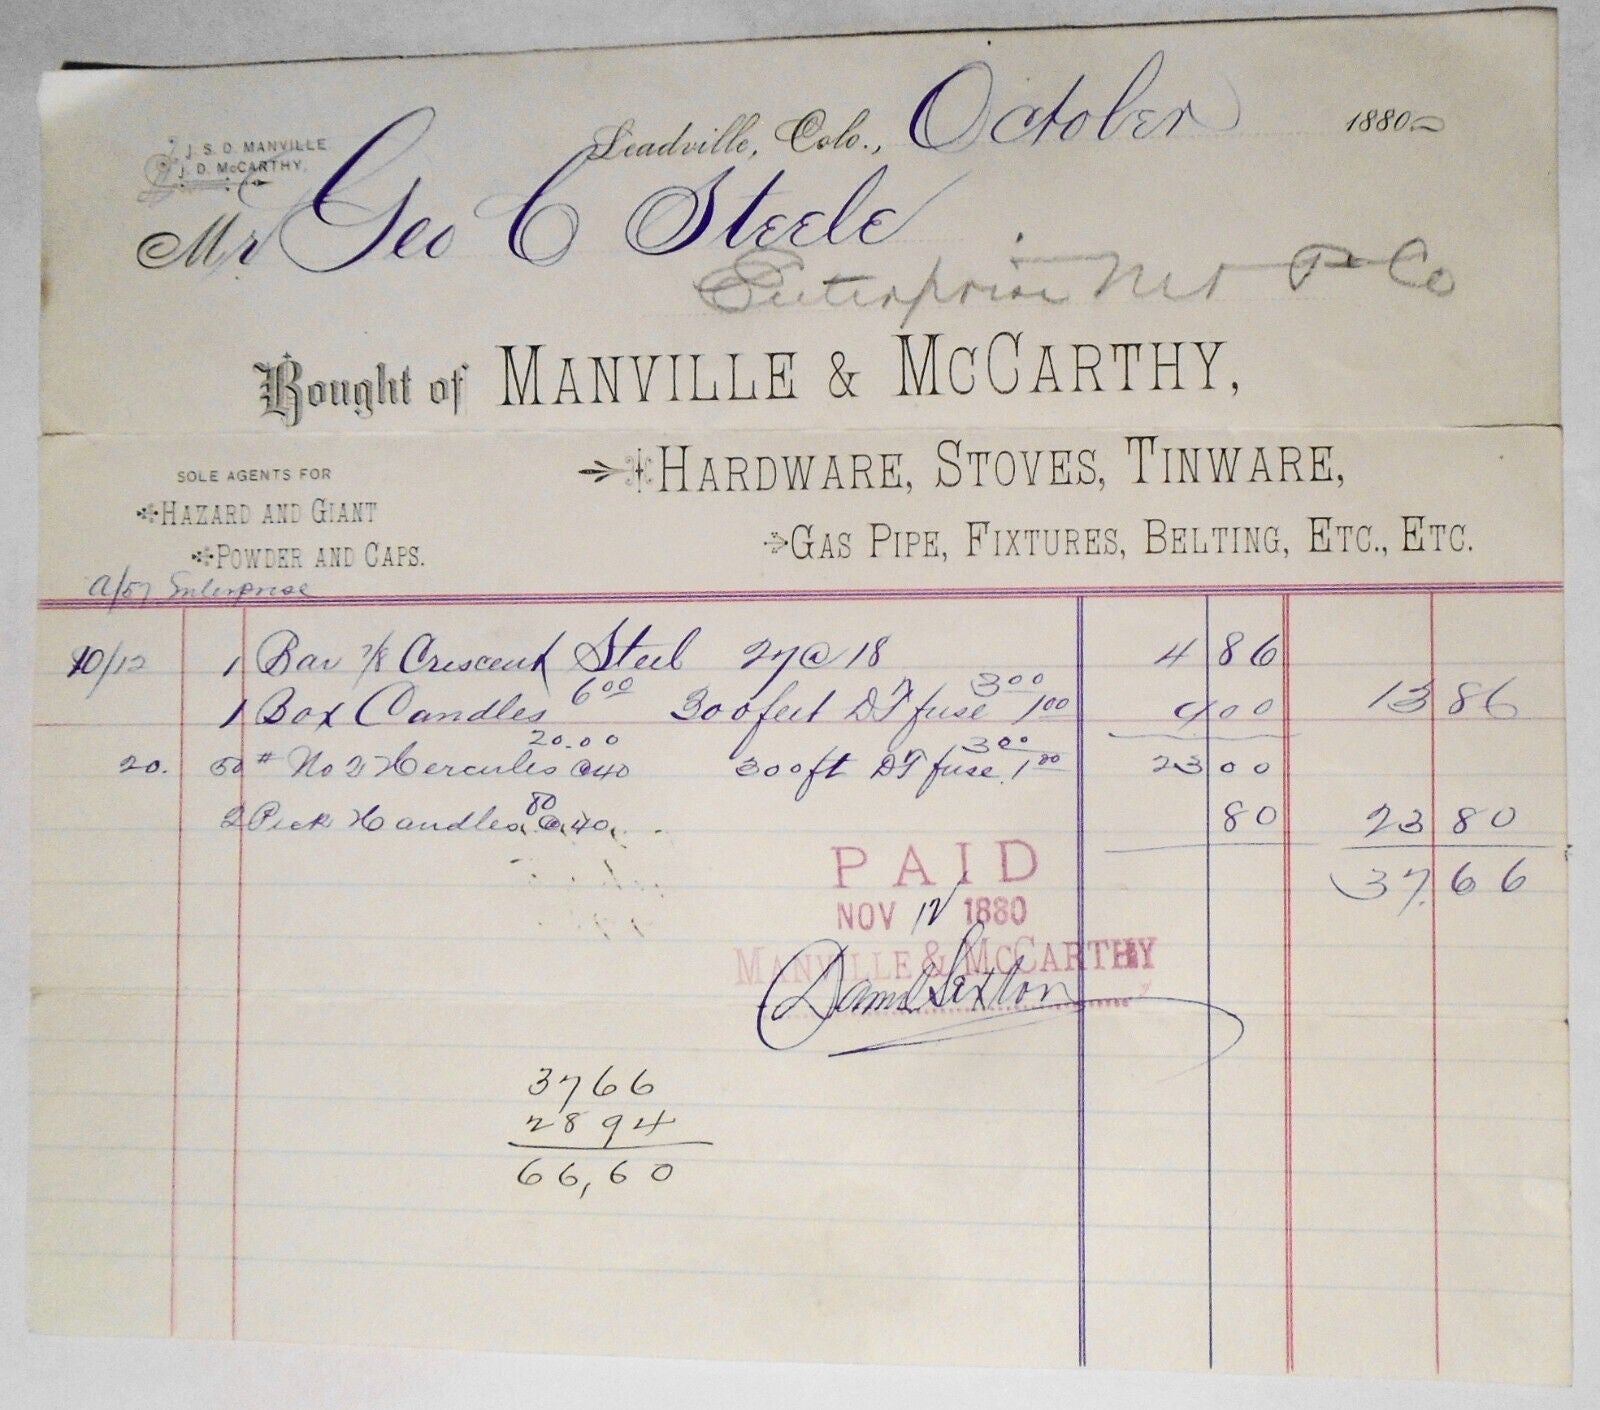 Leadville, Colo., October 1880
J. S. D. MANVILLE
J. D. McCARTHY.
Mr Geo C Steele
Enterprise Mt P Co
Bought of MANVILLE & McCARTHY,
HARDWARE, STOVES, TINWARE,
GAS PIPE, FIXTURES, BELTING, ETC., ETC.
SOLE AGENTS FOR
HAZARD AND GIANT
POWDER AND CAPS.
a/57 Enterprise
10/12 1 Bar 7/8 Crescent Steel 27 @ 18 4 86
1 Box Candles 6 00 300 feet DT fuse 1 00 3 00 9 00 13 86
20. 50 # No 2 Hercules @ 40 20.00 300 ft DT fuse 1 00 3 00 23 00
2 Pick Handles @ 40 80 80 23 80
37.66
PAID
NOV 12 1880
MANVILLE & McCARTHY
Danl Sexton
3766
2894
66,60